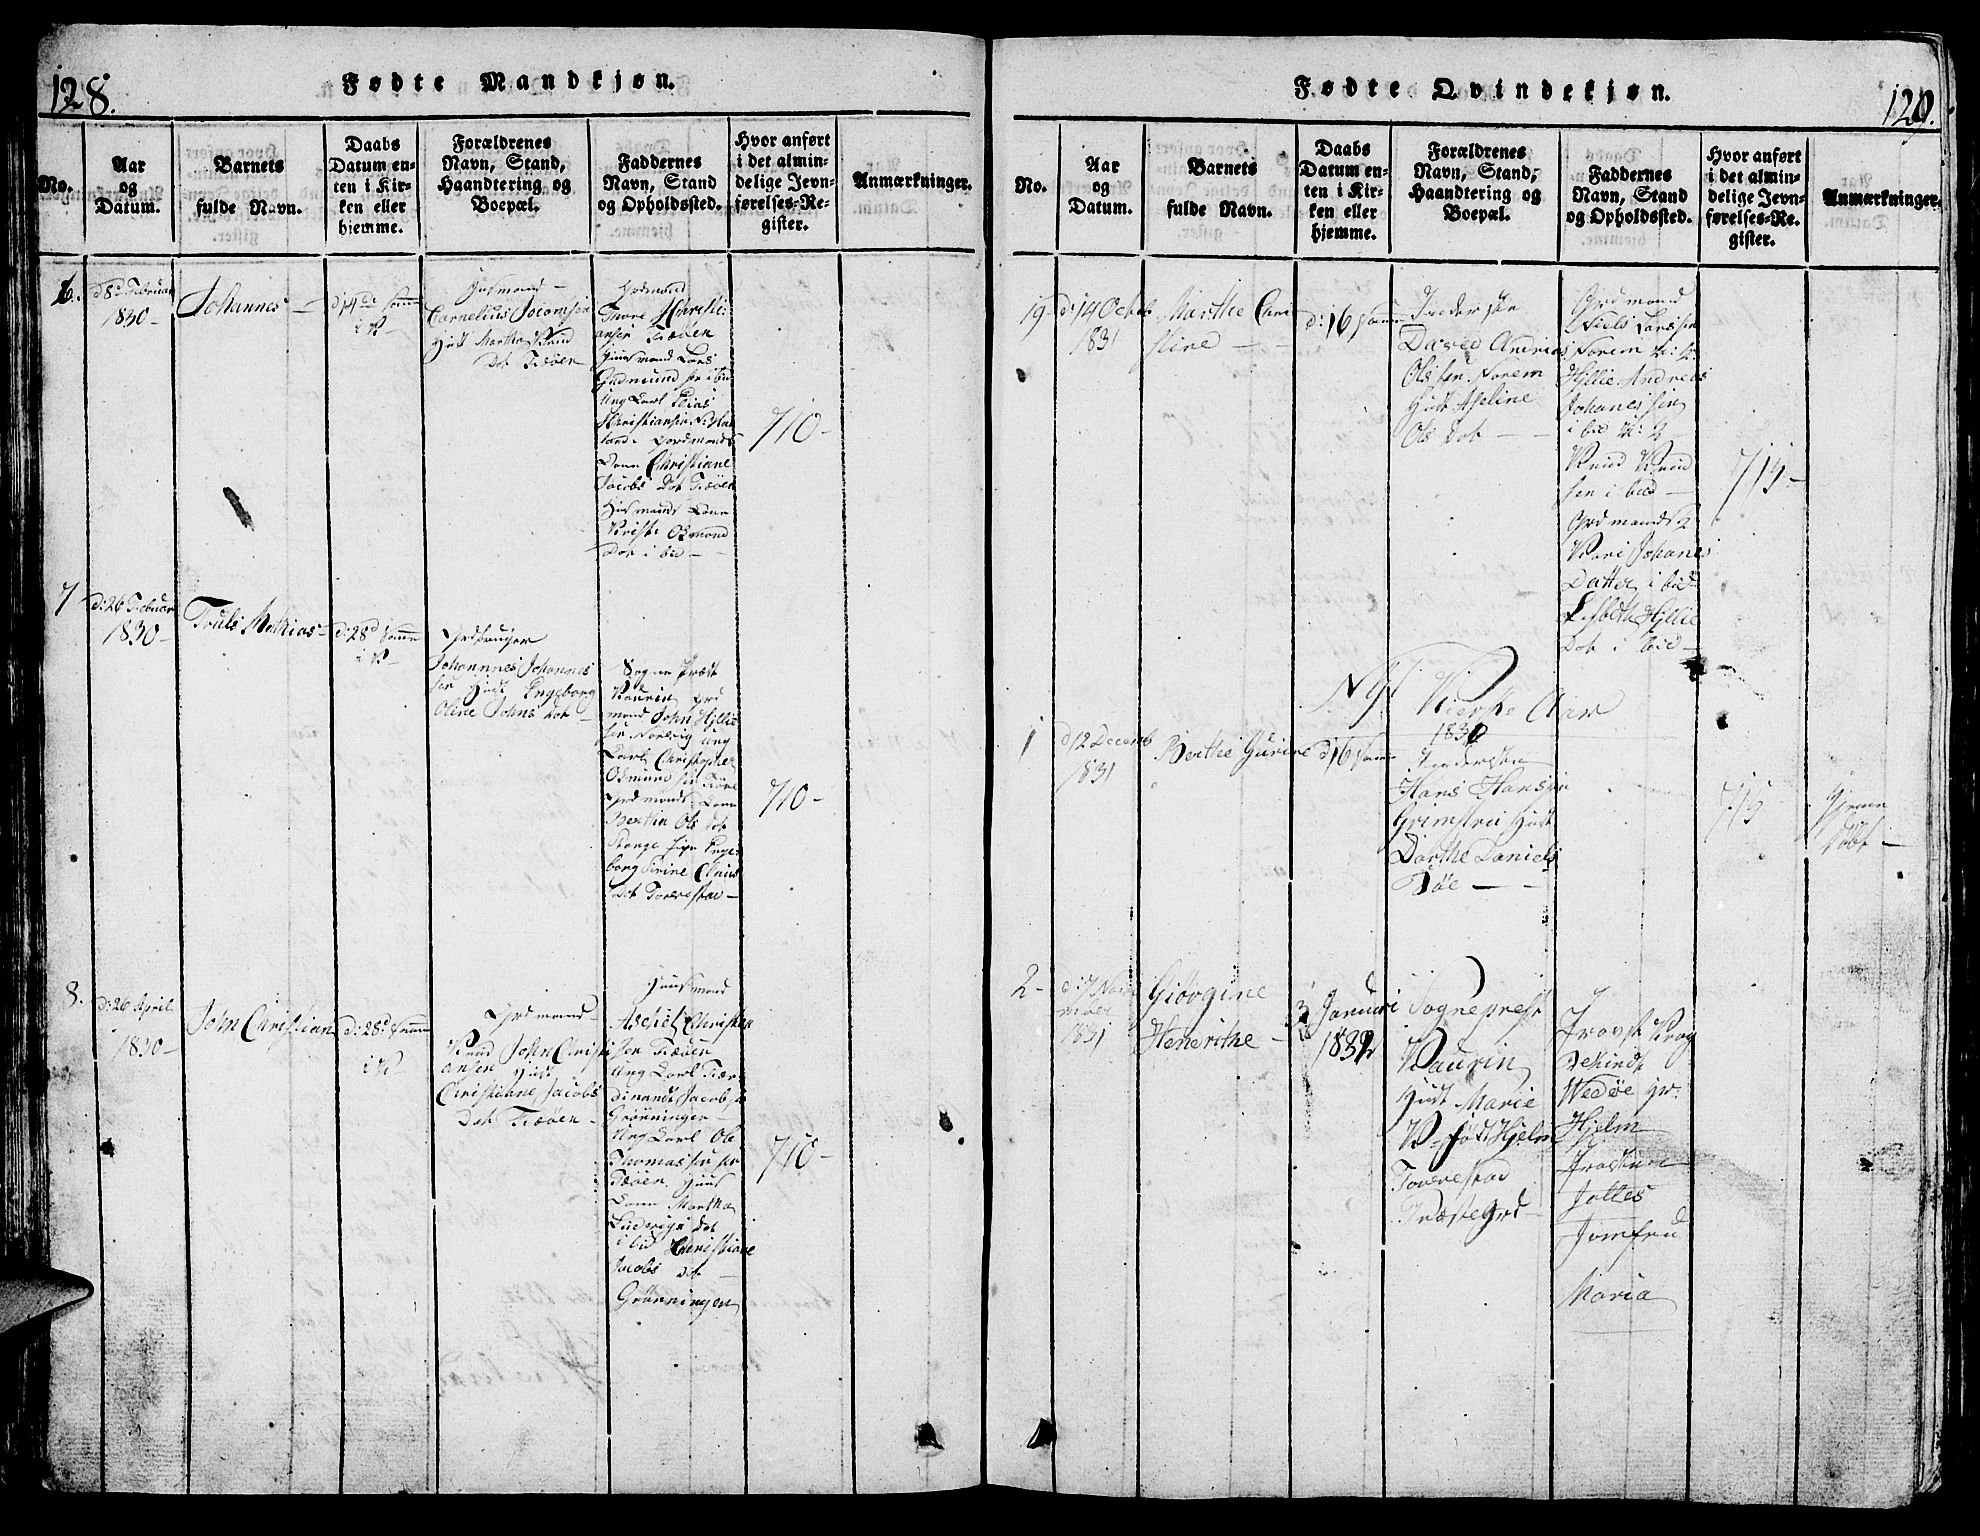 128.
Fødte Mandkjøn.
No.
Aar
og
Datum.
Barnets
fulde Navn.
Daabs
Datum en-
ten i Kir-
ken eller
hjemme.
Forældrenes
Navn, Stand,
Haandtering og
Boepæl.
Faddernes
Navn, Stand
og Opholdssted.
Hvor anført
i det almin-
delige Jevn-
førelses-Re-
gister.
Anmærkninger.
6.
d 8d Februar
1830-
Johannes -
d 14de Samme
i K-
Husmand -
Cornelius Jocomsen
Hust Martha Knud
Dot Fæøen
Grdmand
Thore Christi-
ansen Fæøen
Huusmand Lars
Gudmund sen ibid
Ung Karl Elias
Christiansen
land. Grdmands
Kone Christianne
Jacobs Dot Fæøen
Husmands Kone
Osmund
Dot i bid -
710-
7
d: 26 Februar
1830-
Truls Mathias-
d: 28d Samme
i K-
Grdbruger
Johannnes Johannes
sen Hust Engeborg
Oline Johns Dot -
Sogne Præst
Kaurin Grd
mand John Hjllie
sen Norevig Ung
Karl Christopher
Osmund sen
Grdmands Kone
Berthe Ols Dot
Stange Enge
borg Serine Clauss
Dot Torvestad -
710-
8.
d: 26 April
1830-
John Christian
d: 28d Samme
i K
Grdmand -
Knud John Christi
ansen Hust
Christianne Jacobs
Dot Fæøen -
Huusmand
Aschiel Christen
sen Fæøen
Ung Karl Fær-
dinandt Jacob, s
Grønningen
Ung Karl Ole
Thomassen
Fæøen, Huus
Kone Martha
Ludevigs Dot
i bid Christiane
Jacobs Dot -
Grønningen
710-
129.
Fødte Qvindekjøn.
No.
Aar
og
Datum.
Barnets
fulde Navn.
Daabs
Datum en-
ten i Kir-
ken eller
hjemme.
Forældrenes
Navn, Stand,
Haandtering og
Boepæl.
Faddernes
Navn, Stand
og Opholdssted.
Hvor anført
i det almin-
delige Jevn-
førelses-Re-
gister.
Anmærkninger.
19-
d: 14 Octob
1831
Marthe Chri
stine - -
d: 16 Samme
Inderste
David Andrias
Olssen Norem
Hust Aseline
Ols Dot - -
Grdmand
Niels Larssen
Norem
Hjllie Andreas
Johanes sen
i bid
Knud Knud
sen i bid -
Grdmands K
Kari Johanes
Datter i bid
Lisbeth Hjllie
Dot i bid -
715-
Nyt Kierke Aar
1831
1
d 12 Decemb
1831
Berthe Gurine
d 16 Samme
Inderste
Hans Hansen
Grimstvei Hust
Dorthe Daniels
Bøe - -
715
Hjemme
døbt -
2-
d: 7 Nov
ember
1831
Giorgine
Henerithe -
3 Januari
1832
Sogneprest
Kaurin
Hust Marie
K - født Hjelm
Torvestad
Præstegrd -
Provst Krog
Wedøe Hr:
Hjelm
Provstinde
Jomfru
Maria